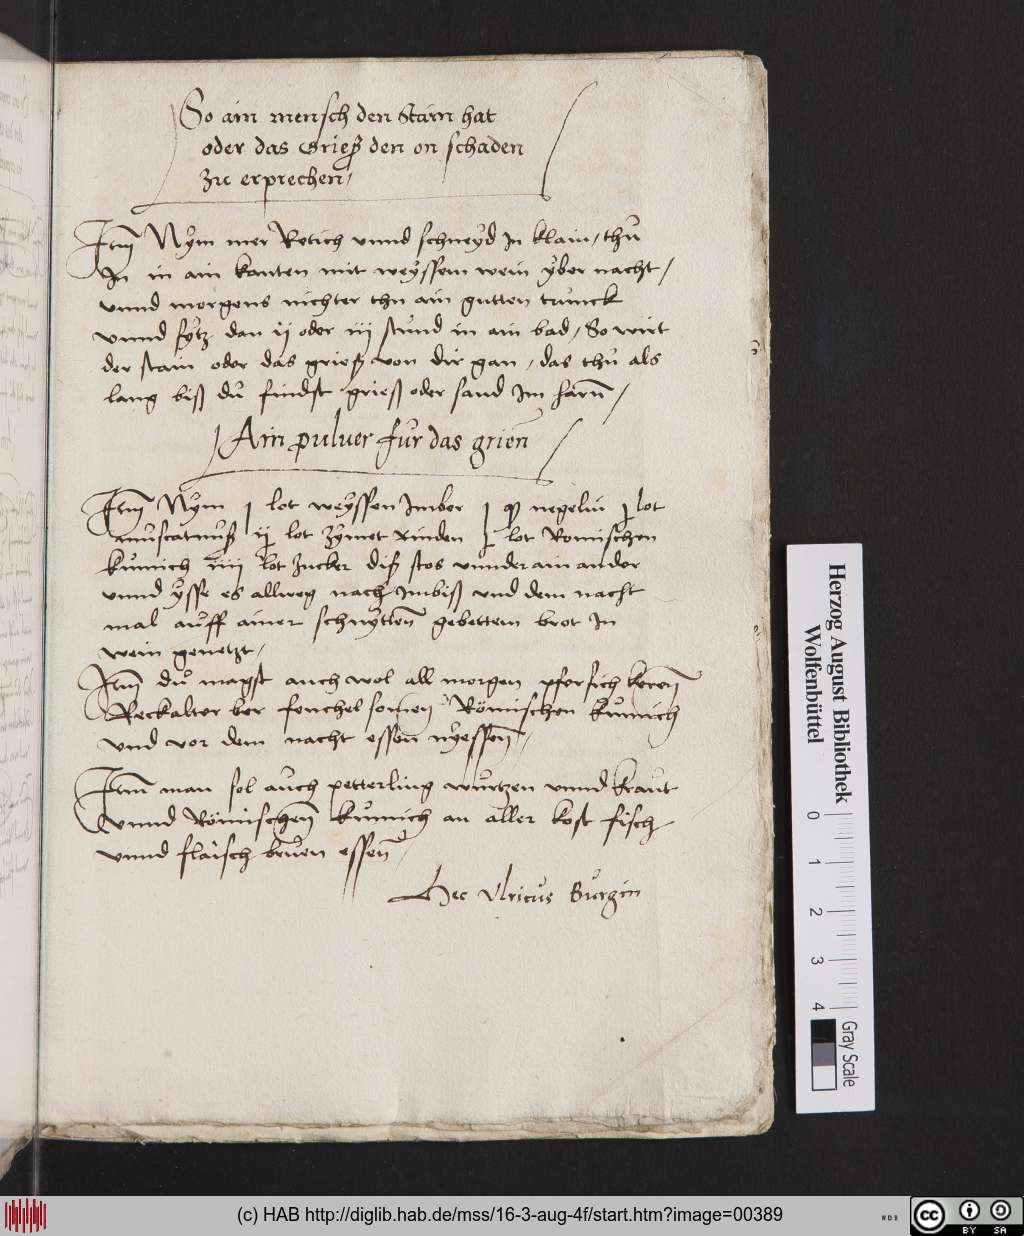 So ain mensch den Stain hat
oder das Grieß den on schaden
zu erprechen,
Itm̄ Nÿm mer Retich vnnd schneÿd In klain, thů
In in ain kanten mit weÿssem wein ÿber nacht,
vnnd morgens niechter thu ain gutten trunck
vnnd sÿtz dan ij oder iij stund in ain bad, So wirt
der stain oder das grieß von dir gan, das thů als
lang biß dů findst grieß oder sand Im harn̄,
Ain puluer fůr das grien̄
Itm̄ Nÿm j lot weÿssen Imber j q negelin j lot
muscatnuß ij lot Zÿmet rinden j lot Romischen
kůmich iiij lot Zucker diß stos vnnder ain ander
vnnd ÿsse es allweg nach Imbiß vnd dem nacht
mal auff ainer schnÿtlen̄ gebettem brot In
wein genetzt,
Itm̄ dů magst auch wol all morgen pfersich keren̄
Reckalter ber fenchel somen̄ Römischen kůmich
vnd vor dem nacht essen̄ nÿessen̄,
Itm̄ man sol auch petterling wurtzen vnnd kraut
vnnd Römischen̄ kůmich an aller kost fisch
vnnd flaisch brůen essen̄,
Hec Vlricus Burgin
Herzog August Bibliothek
Wolfenbüttel
0 1 2 3 4
Gray Scale
(c) HAB http://diglib.hab.de/mss/16-3-aug-4f/start.htm?image=00389
WDB
cc
BY SA